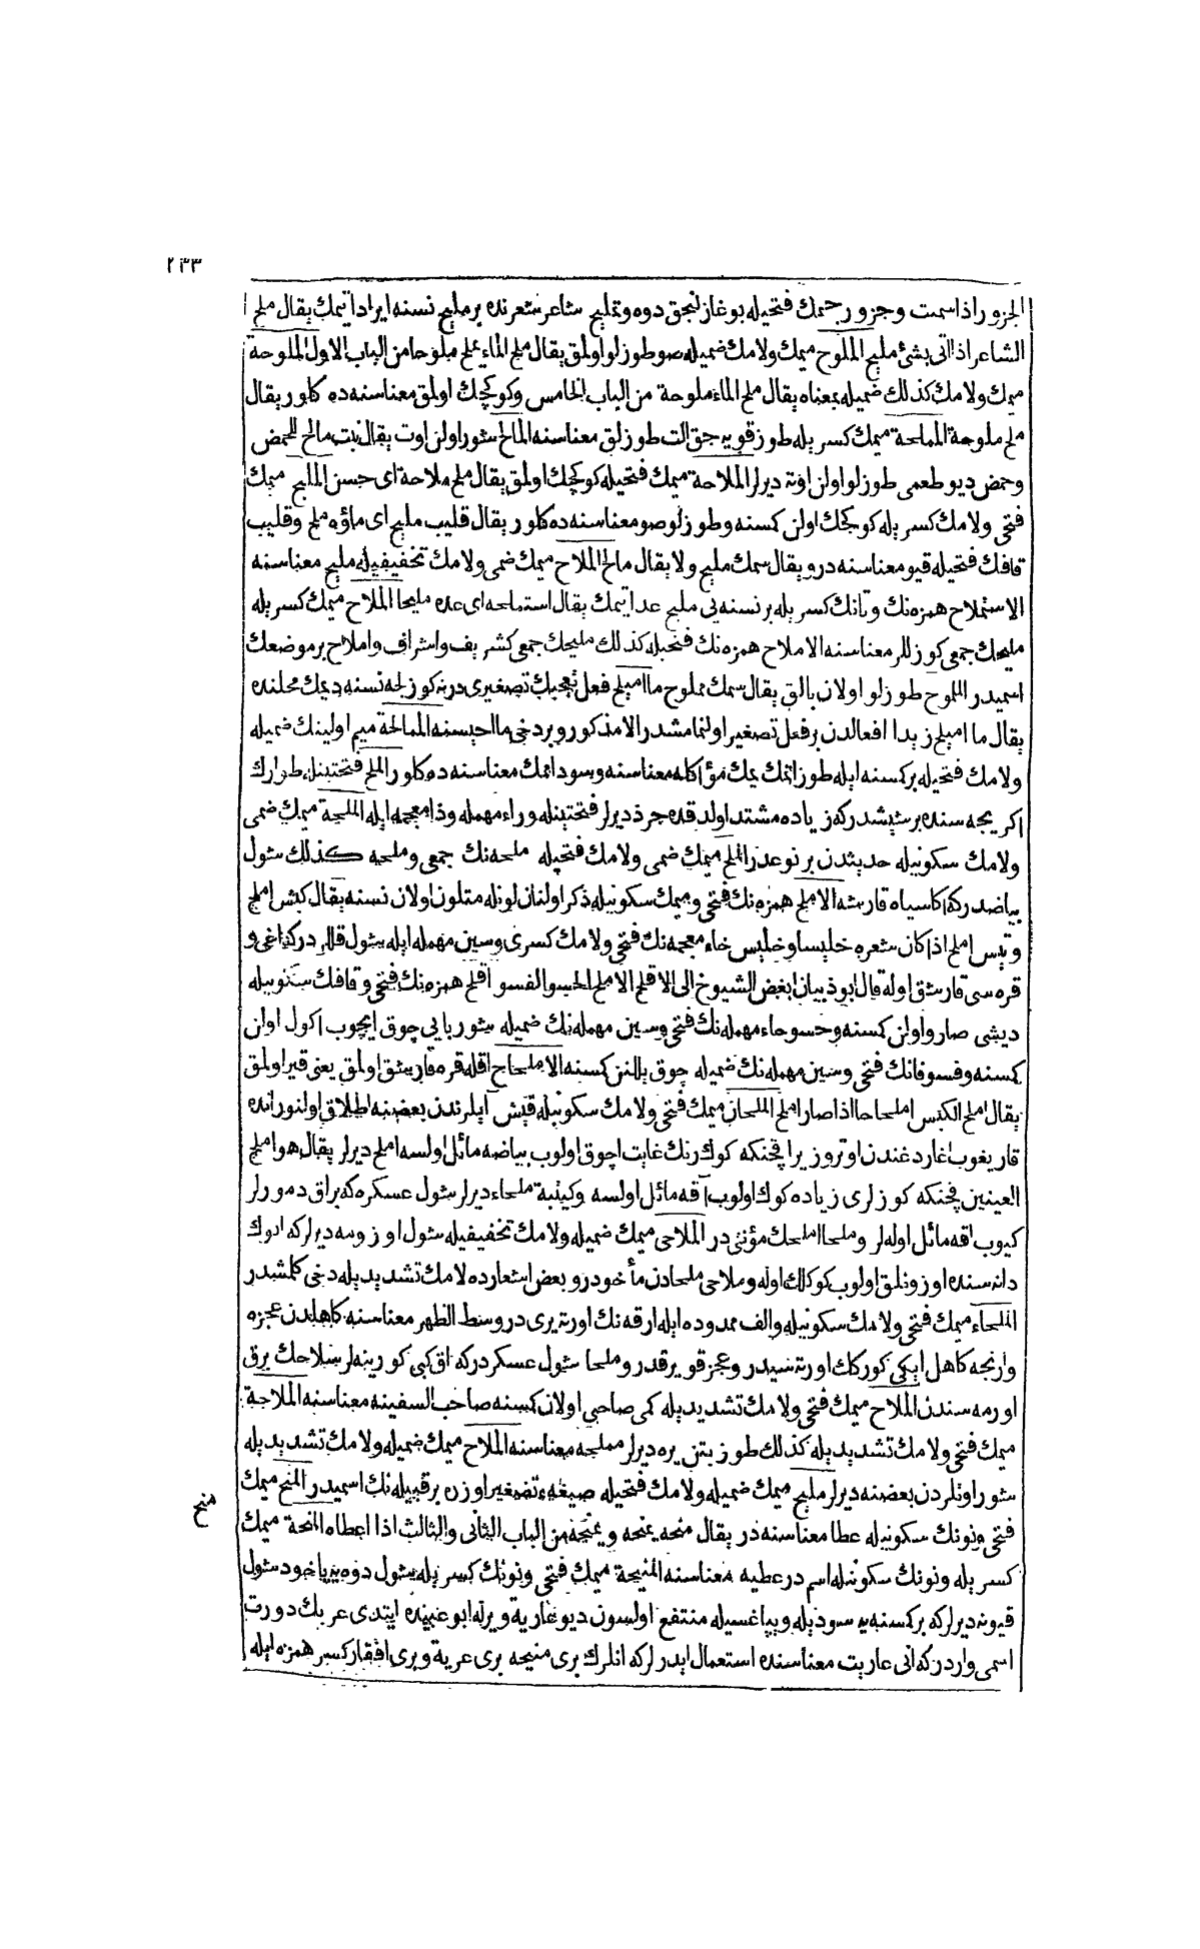 ٢٣٣
الجزور اذا سمنت وجزور جيمك فتحيله بوغازلنجق دوه وتمليح شاعر شعرنده بر مليح نسنه ايراد ايتمك يقال ملح
الشاعر اذا اتى بشئ مليح الملوح ميمك ولامك ضميله صو طوزلو اولمق يقال ملح الماء يملح ملوحا من الباب الاول الملوحة
ميمك ولامك كذلك ضميله بمعناه يقال ملح الماء ملوحة من الباب الخامس وكوكچك اولمق معناسنه ده كلور يقال
ملح ملوحة المملحة ميمك كسريله طوز قويه جق الت طوزلق معناسنه المالح شور اولن اوت يقال نبت مالح للحمض
وحمض ديو طعمى طوزلو اولن اوته ديرلر الملاحة ميمك فتحيله كوكچك اولمق يقال ملح ملاحة اى حسن المليح ميمك
فتحى ولامك كسريله كوكچك اولن كمسنه وطوزلو صو معناسنه ده كلور يقال قليب مليح اى ماؤه ملح وقليب
قافك فتحيله قيو معناسنه در ويقال سمك مليح ولا يقال مالح الملاح ميمك ضمى ولامك تخفيفيله مليح معناسنه
الاستملاح همزه نك وتانك كسريله بر نسنه يى مليح عد ايتمك يقال استملحه اى عده مليحا الملاح ميمك كسريله
مليحك جمعى كوزللر معناسنه الاملاح همزه نك فتحيله كذلك مليحك جمعى كشريف واشراف واملاح بر موضعك
اسميدر المملوح طوزلو اولان بالق يقال سمك مملوح ما اميلح فعل تعجبك تصغيرى در نه كوزلجه نسنه ديمك محلنده
يقال ما اميلح زيدا افعالدن بر فعل تصغير اولنمامشدر الا مذكور وبر دخى ما احيسنه الممالحة ميم اولينك ضميله
ولامك فتحيله بر كمسنه ايله طوز اتمك يمك مؤاكله معناسنه وسود امك معناسنه ده كلور الملح فتحتينله طوارك
اكريجه سنده بر شيشدر كه زياده مشتد اولدقده جرذ ديرلر فتحتينله وراء مهمله وذا معجمه ايله الملحة ميمك ضمى
ولامك سكونيله حديثدن بر نوعدر الملح ميمك ضمى ولامك فتحيله ملحه نك جمعى وملحه كذلك شول
بياضدر كه اكا سياه قارشه الاملح همزه نك فتحى وميمك سكونيله ذكر اولنان لونله متلون اولان نسنه يقال كبش املح
وتيس املح اذا كان شعره خليسا وخليس خاء معجمه نك فتحى ولامك كسرى وسين مهمله ايله شول قللر در كه اغى و
قره سى قارشق اوله قال ابو ذبيان ابغض الشيوخ الى الاقلح الاملح الحسو الفسو اقلح همزه نك فتحى وقافك سكونيله
ديشى صارو اولن كمسنه وحسو حاء مهمله نك فتحى وسين مهمله نك ضميله شوربايى چوق ايچوب اكول اولن
كمسنه وفسو فانك فتحى وسين مهمله نك ضميله چوق يللنن كمسنه الاملحاح اقله قره قارشق اولمق يعنى قير اولمق
يقال املح الكبش املحاحا اذا صار املح الملحان ميمك فتحى ولامك سكونيله قيش ايلرندن بعضنه اطلاق اولنور انده
قار يغوب اغاردغندن اوتروز يرا قچنكه كوك رنك غايت اچوق اولوب بياضه مائل اولسه املح ديرلر يقال هو املح
العينين قچنكه كوزلرى زياده كوك اولوب آقه مائل اولسه وكتيبة ملحاء ديرلر شول عسكره كه براق دمورلر
كيوب اقه مائل اوله لر وملحا املحك مؤنثى در الملاحى ميمك ضميله ولامك تخفيفيله شول اوزومه ديرلر كه انوك
دانه سنده اوزونلق اولوب كوكلك اوله وملاحى ملحادن مأخوذدر وبعض اشعارده لامك تشديديله دخى كلمشدر
الملحاء ميمك فتحى ولامك سكونيله والف ممدوده ايله ارقه نك اورته يرى در وسط الظهر معناسنه كاهلدن عجزه
وارنجه كاهل ايكى كورككك اورته سيدر وعجز قويرقدر وملحا شول عسكر در كه اق كبى كورينه لر سلاحك برق
اورمه سندن الملاح ميمك فتحى ولامك تشديديله كمى صاحبى اولان كمسنه صاحب السفينه معناسنه الملاحة
ميمك فتحى ولامك تشديديله كذلك طوز بتن يره ديرلر مملحه معناسنه الملاح ميمك ضميله ولامك تشديديله
شور اوتلردن بعضنه ديرلر مليح ميمك ضميله ولامك فتحيله صيغهء تصغير اوزره بر قبيله نك اسميدر المنح ميمك
منح
فتحى ونونك سكونيله عطا معناسنه در يقال منحه يمنحه ويمنحه من الباب الثانى والثالث اذا اعطاه المنحة ميمك
كسريله ونونك سكونيله اسم در عطيه معناسنه المنيحة ميمك فتحى ونونك كسريله شول دوه يه ياخود شول
قيونه ديرلر كه بر كمسنه يه سوديله ويپاغسيله منتفع اولسون ديو عاريه ويرله ابو عبيده ايتدى عربك دورت
اسمى واردر كه انى عاريت معناسنده استعمال ايدرلر كه انلرك برى منيحه برى عرية وبرى افقار كسر همزه ايله